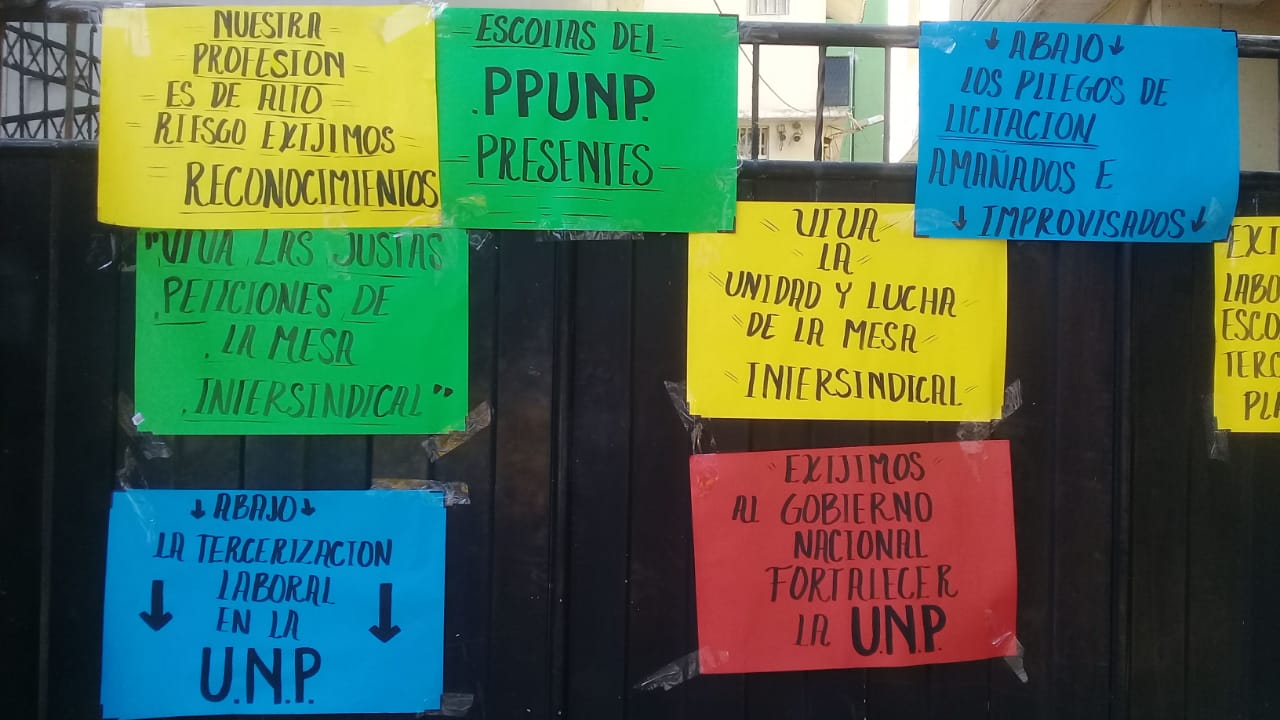 NUESTRA
PROFESION
ES DE ALTO
RIESGO EXIJIMOS
RECONOCIMIENTOS
ESCOLTAS DEL
.PPUNP.
PRESENTES
↓ ABAJO ↓
LOS PLIEGOS DE
LICITACION
AMAÑADOS E
↓ IMPROVISADOS ↓
"VIVA LAS JUSTAS
PETICIONES DE
. LA MESA
. INTERSINDICAL"
VIVA
LA
UNIDAD Y LUCHA
DE LA MESA
INTERSINDICAL
EXI
LABO
ESCO
TERC
PLA
↓ ABAJO ↓
LA TERCERIZACION
LABORAL
EN LA
U.N.P.
EXIJIMOS
AL GOBIERNO
NACIONAL
FORTALECER
LA U.N.P.